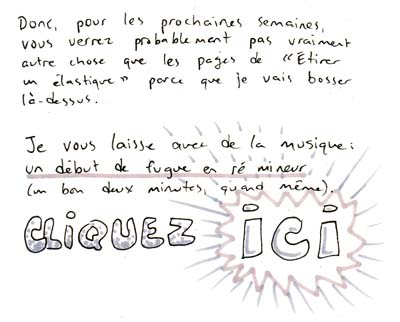 Donc, pour les prochaines semaines,
vous verrez probablement pas vraiment
autre chose que les pages de "Étirer
un élastique" parce que je vais bosser
là-dessus.
Je vous laisse avec de la musique:
un début de fugue en ré mineur
(un bon deux minutes, quand même).
CLIQUEZ ICI